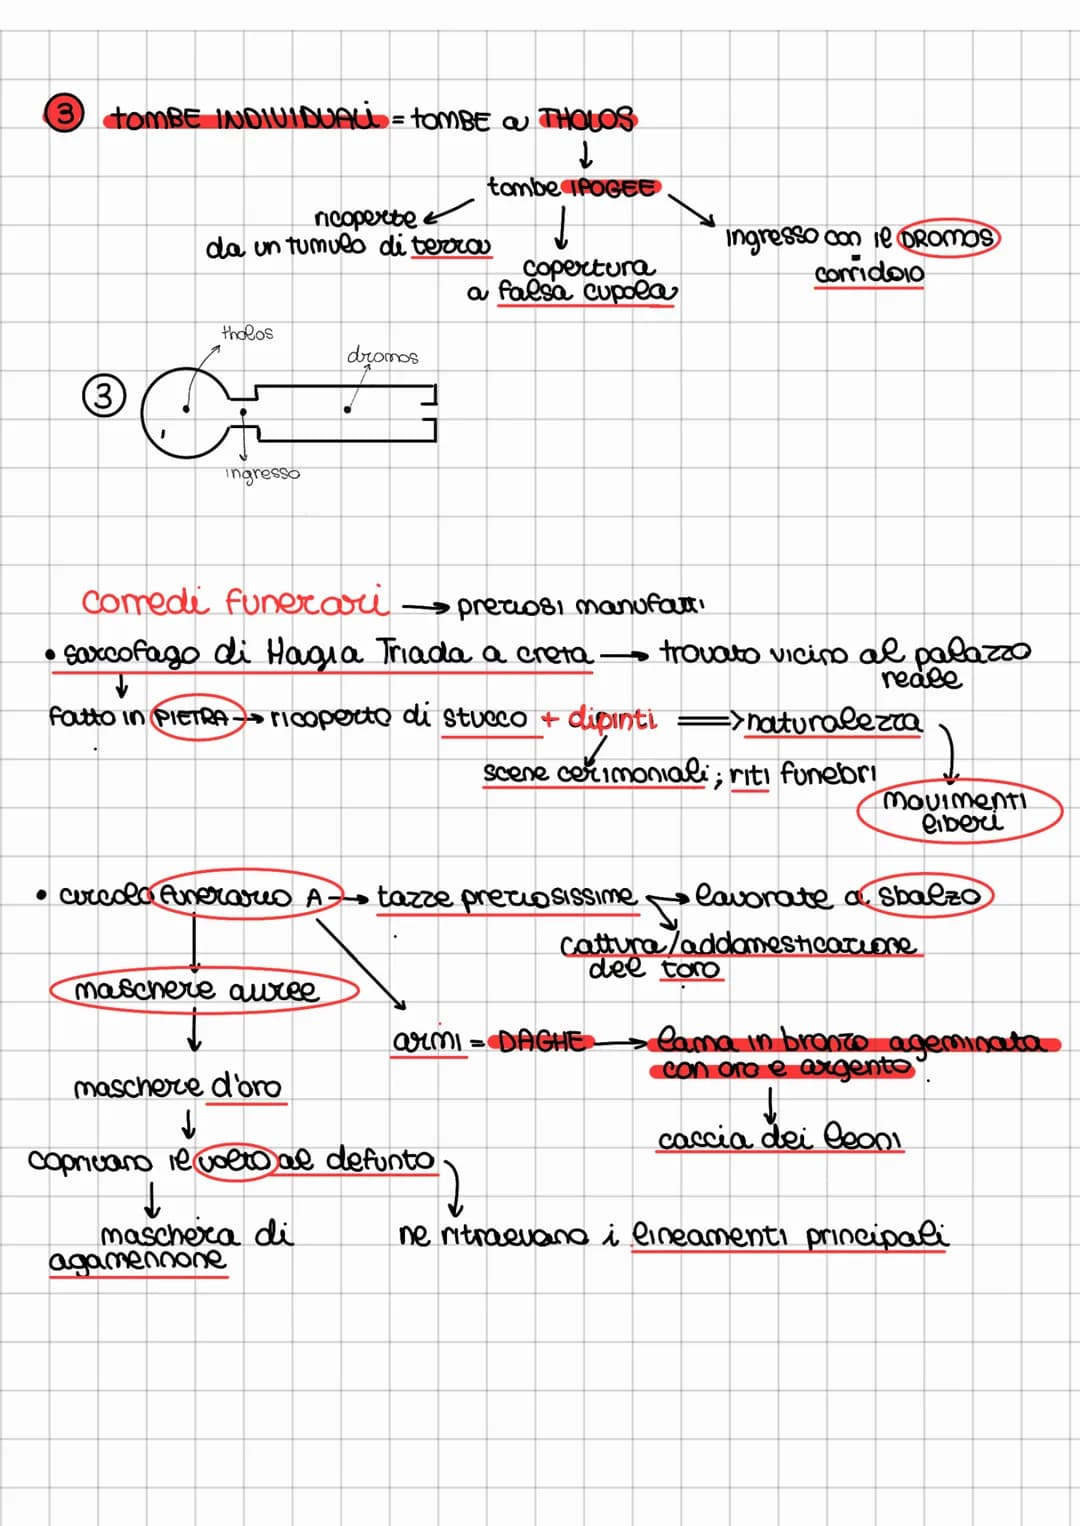 3 TOMBE INDIVIDUALI = TOMBE a THOLOS
tombe IPOGEE
ricoperte
da un tumulo di terra
copertura
a falsa cupola
ingresso con il DROMOS
corridoio
tholos
dromos
3
ingresso
corredi funerari → preziosi manufatti
• sarcofago di Hagia Triada a creta → trovato vicino al palazzo
reale
fatto in PIETRA → ricoperto di stucco + dipinti => naturalezza
scene cerimoniali; riti funebri
movimenti
liberi
• circolo funerario A → tazze preziosissime → lavorate a sbalzo
cattura/addomesticazione
del toro
maschere auree
armi = DAGHE → lama in bronzo ageminata
con oro e argento
maschere d'oro
caccia dei leoni
coprivano il volto al defunto
maschera di
agamennone
ne ritraevano i lineamenti principali